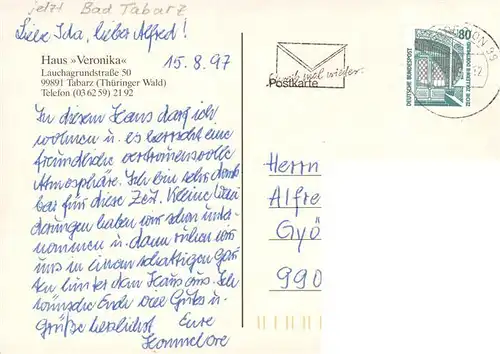 jetzt Bad Tabarz
Liebe Ida, lieber Alfred!
15.8.97
Haus »Veronika«
Lauchagrundstraße 50
99891 Tabarz (Thüringer Wald)
Telefon (03 62 59) 21 92
In diesem Haus darf ich
wohnen u. es herrscht eine
freundliche vertrauensvolle
Atmosphäre. Ich bin sehr dank-
bar für diese Zeit. Kleine Wan-
derungen haben wir schon unter-
nommen u. dann ruhen wir
uns in einem schattigen Gar-
ten hinter dem Haus aus. Ich
wünsche Euch viel Gutes u.
Grüße herzlichst Eure
Hannelore
Schreib mal wieder.
Postkarte
80
DEUTSCHE BUNDESPOST
Herrn
Alfre
Gyö
990